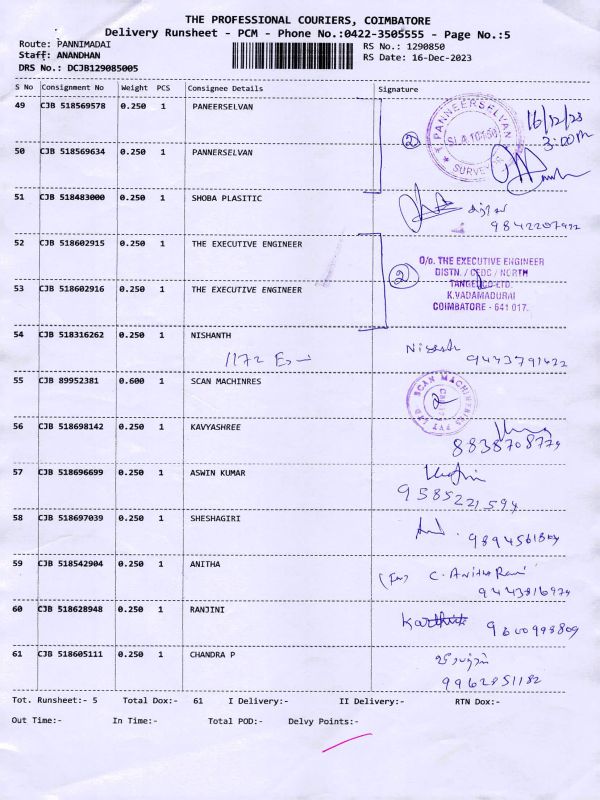 THE PROFESSIONAL COURIERS, COIMBATORE
Delivery Runsheet - PCM - Phone No.:0422-3505555 - Page No.:5
Route: PANNIMADAI
Staff: ANANDHAN
DRS No.: DCJB129085005
RS No.: 1290850
RS Date: 16-Dec-2023
S No Consignment No Weight PCS Consignee Details Signature
49 CJB 518569578 0.250 1 PANEERSELVAN
2
PANNEERSELVAN
SURVEYOR
16/12/23
3:00pm
50 CJB 518569634 0.250 1 PANNERSELVAN
51 CJB 518483000 0.250 1 SHOBA PLASITIC
9842207922
52 CJB 518602915 0.250 1 THE EXECUTIVE ENGINEER
2
O/o. THE EXECUTIVE ENGINEER
DISTN. / CEDC / NORTH
TANGEDCO LTD.
K.VADAMADURAI
COIMBATORE - 641 017.
53 CJB 518602916 0.250 1 THE EXECUTIVE ENGINEER
54 CJB 518316262 0.250 1 NISHANTH
1172
9443791422
55 CJB 89952381 0.600 1 SCAN MACHINRES
56 CJB 518698142 0.250 1 KAVYASHREE
8838708779
57 CJB 518696699 0.250 1 ASWIN KUMAR
9585221594
58 CJB 518697039 0.250 1 SHESHAGIRI
59 CJB 518542904 0.250 1 ANITHA
C. Anitha Rani
9443816979
60 CJB 518628948 0.250 1 RANJINI
Karthik 9600998809
61 CJB 518605111 0.250 1 CHANDRA P
9962851182
Tot. Runsheet:- 5 Total Dox:- 61 I Delivery:- II Delivery:- RTN Dox:-
Out Time:- In Time:- Total POD:- Delvy Points:-